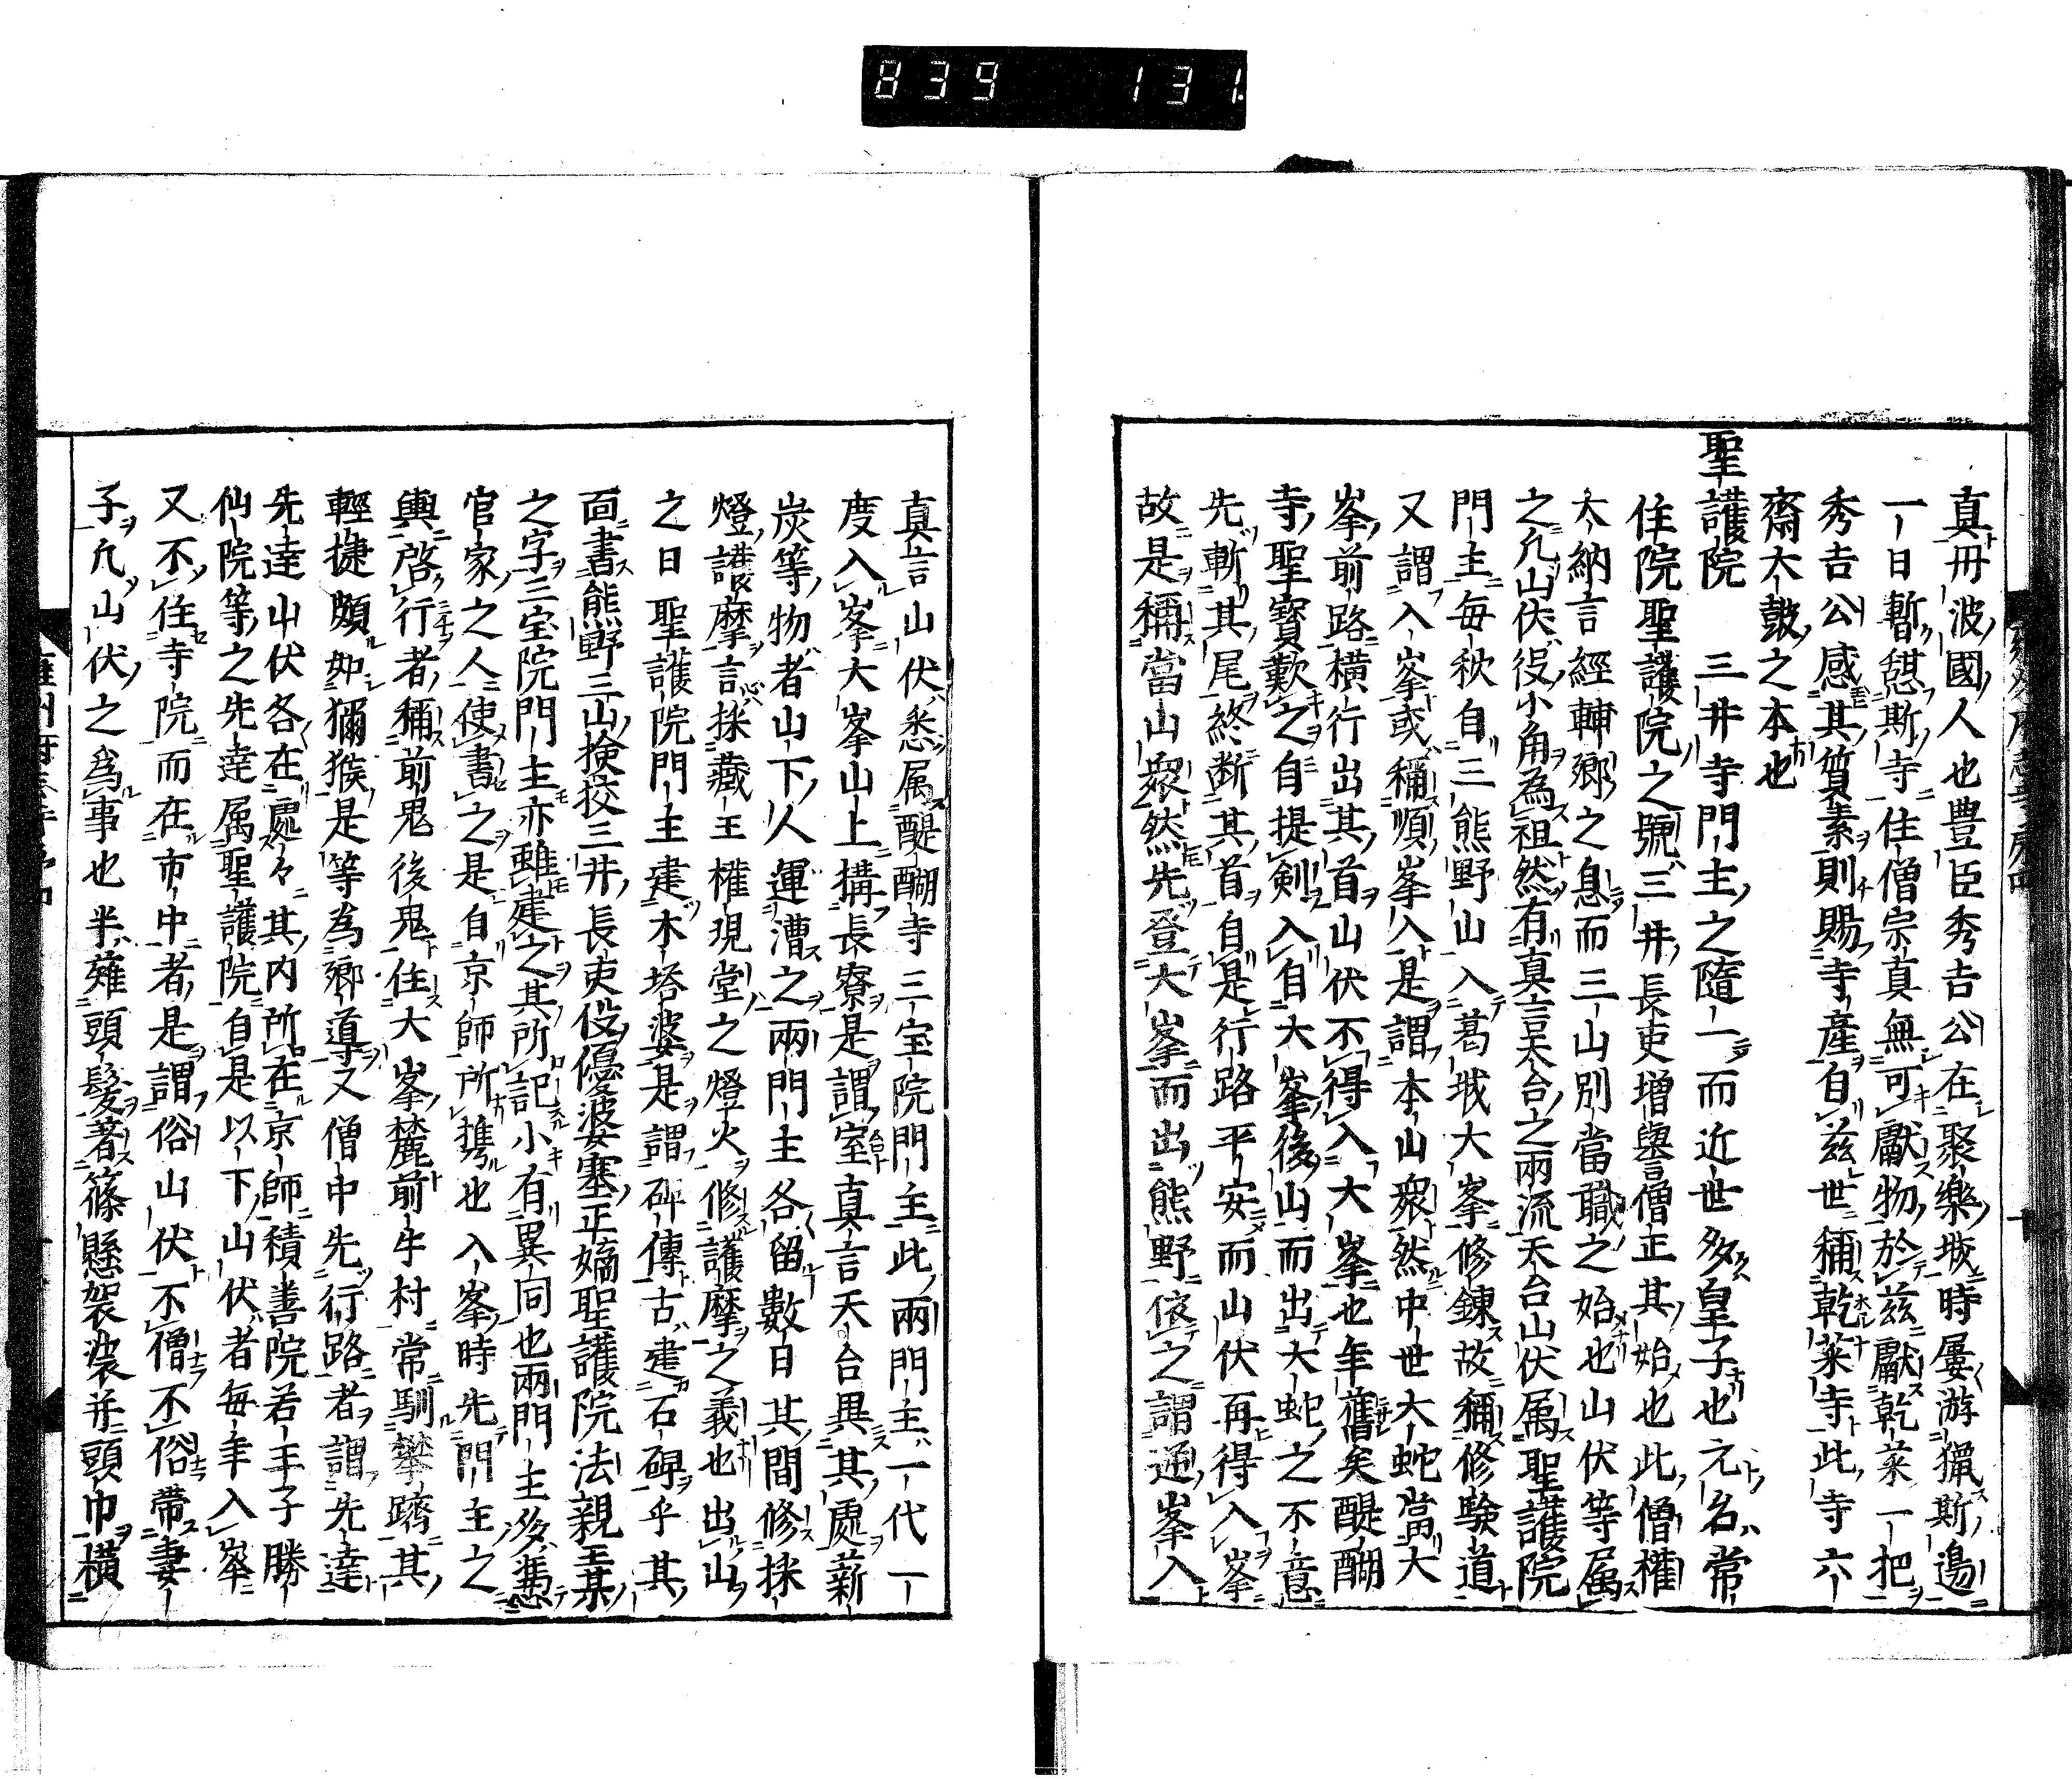 839 131.
真丹波國人也豊臣秀吉公在聚樂城時屢游獵斯邉
一日暫憩斯寺住僧宗真無可獻物於茲獻乾菜一把
秀吉公感其質素則賜寺産自茲世稱乾菜寺此寺六
齋大鼓之本也
聖護院 三井寺門主之隨一而近世多皇子也元名常
住院聖護院之號三井長吏增譽僧正其始也此僧權
大納言經輔卿之息而三山別當職之始也山伏等属
之凡山伏役小角為祖然有真言天台之兩流天台山伏属聖護院
門主每秋自三熊野山入葛城大峯修錬故稱修驗道
又謂入峯或稱順峯入是謂本山衆然中世大蛇當大
峯前路橫行出其首山伏不得入大峯也年舊矣醍醐
寺聖寳歎之自提剣入自大峯後山而出大蛇之不意
先斬其尾終断其首自是行路平安而山伏再得入峯
故是稱當山衆然先登大峯而出熊野依之謂逆峯入
真言山伏悉属醍醐寺三宝院門主此兩門主一代一
度入峯大峯山上搆長寮是謂室真言天台異其處薪
炭等物者山下人運漕之兩門主各留數日其間修採
燈護摩言採藏王權現堂之燈火修護摩之義也出山
之日聖護院門主建木塔婆是謂碑傳古建石碑乎其
面書熊野三山撿挍三井長吏役優婆塞正嫡聖護院法親王某
之字三宝院門主亦雖建之其所記小有異同也兩門主多憑
官家之人使書之是自京師所携也入峯時先門主之
輿啓行者稱前鬼後鬼住大峯麓前牛村常馴攀躋其
輕捷頗如獼猴是等為鄉導又僧中先行路者謂先達
先達山伏各在處々其内所在京師積善院若王子勝
仙院等之先達属聖護院自是以下山伏者每年入峯
又不住寺院而在市中者是謂俗山伏不僧不俗帶妻
子凡山伏之為事也半薙頭髮著篠懸袈裟并頭巾橫